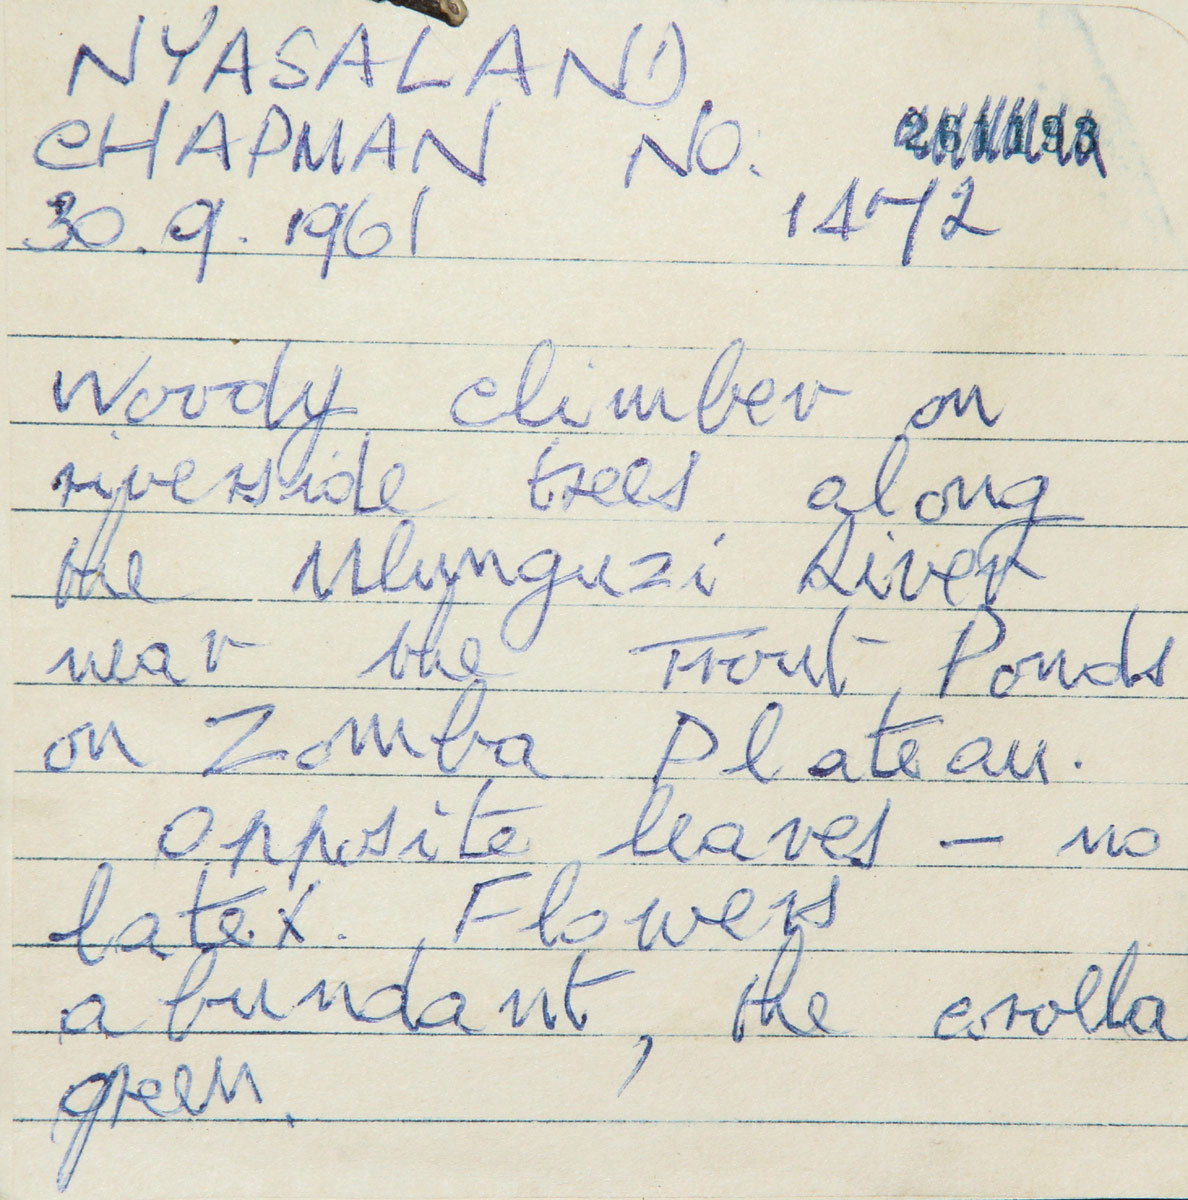 NYASALAND.
CHAPMAN NO. 261193
30.9.1961 1472
Woody climber on
riverside trees along
the Mlunguzi River
near the Trout Ponds
on Zomba Plateau.
Opposite leaves – no
latex. Flowers
abundant, the corolla
green.